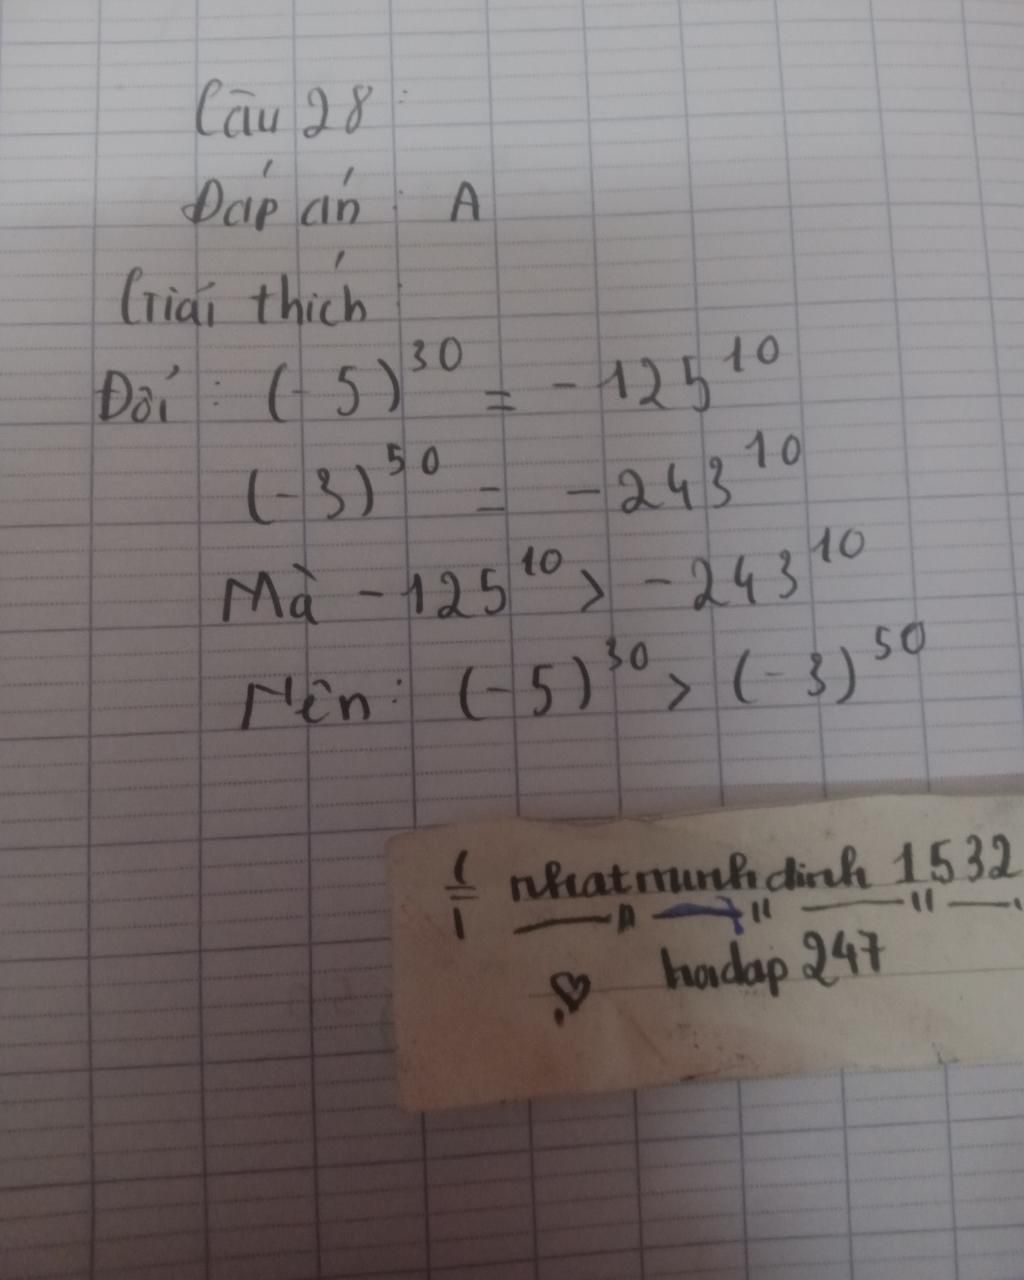 Câu 28:
Đáp án: A
Giải thích:
Đổi: (-5)^30 = -125^10
(-3)^50 = -243^10
Mà -125^10 > -243^10
Nên: (-5)^30 > (-3)^50
nhatminhdinh 1532
hoidap 247